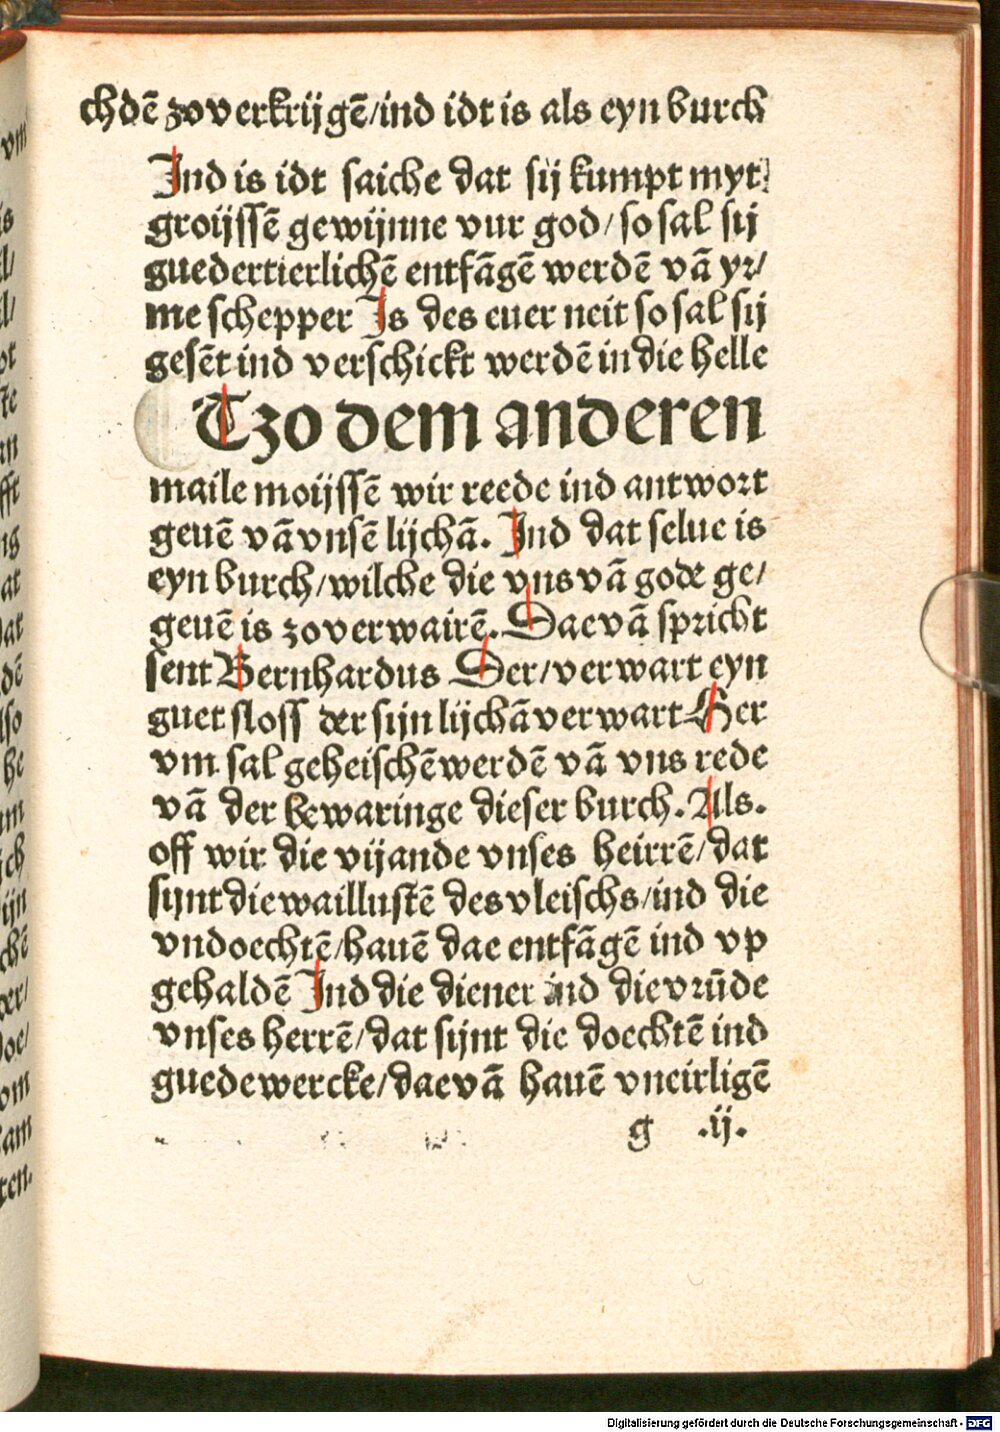 chdē zo verkrijgē/ind idt is als eyn burch
Ind is idt saiche dat sij kumpt myt
groijssē gewijnne vur god/so sal sij
guedertierlichē entfāgē werdē vā yr/
me schepper Is des euer neit so sal sij
gesēt ind verschickt werdē in die helle
Tzo dem anderen
maile moijssē wir reede ind antwort
geuē vā vnsē lijchā. Ind dat selue is
eyn burch/wilche die vns vā gode ge/
geuē is zo verwairē. Dae vā spricht
sent Bernhardus Der/verwart eyn
guet sloss der sijn lijchā verwart Her
vm sal geheischē werdē vā vns rede
vā der bewaringe dieser burch. Als.
off wir die vijande vnses heirrē/dat
sijnt die waillustē des vleischs/ind die
vndoechtē/hauē dae entfāgē ind vp
gehaldē Ind die diener ind die vrūde
vnses herrē/dat sijnt die doechtē ind
guede wercke/dae vā hauē vneirligē
g .ij.
Digitalisierung gefördert durch die Deutsche Forschungsgemeinschaft - DFG